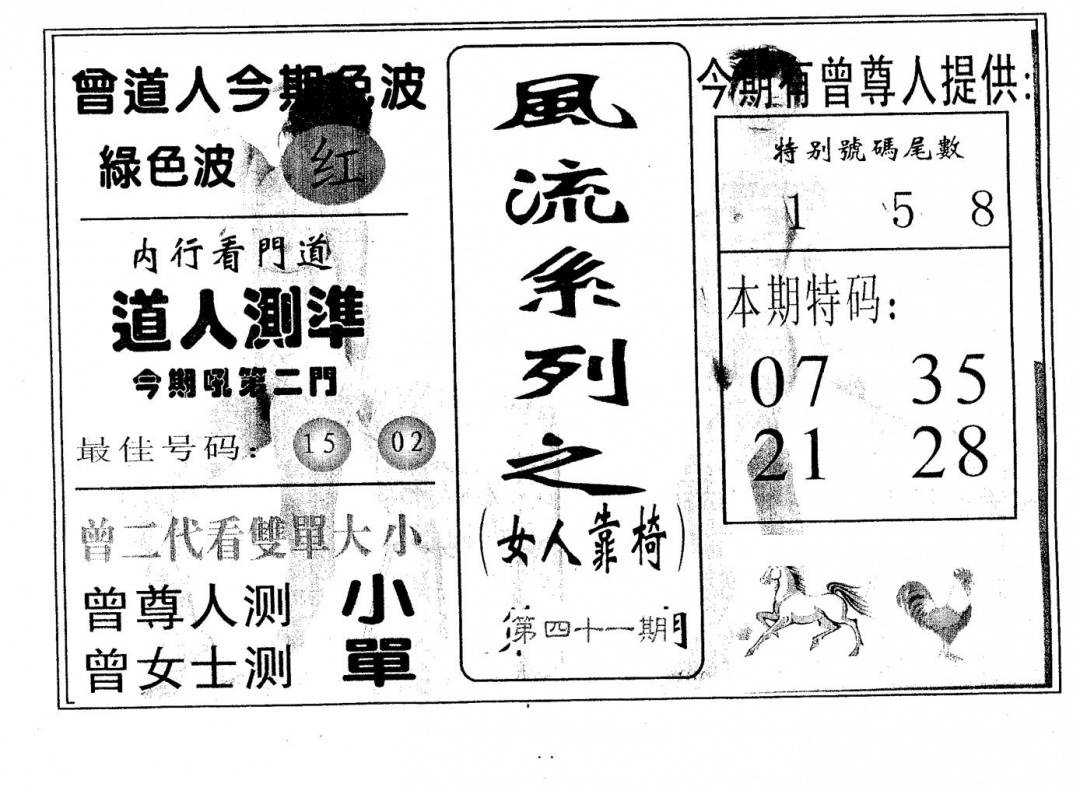 曾道人今期色波
綠色波 红
内行看門道
道人測準
今期吼第二門
最佳号码: 15 02
曾二代看雙單大小
曾尊人测 小
曾女士测 單
風流系列之
(女人靠椅)
第四十一期
今期有曾尊人提供:
特别號碼尾數
1 5 8
本期特码:
07 35
21 28